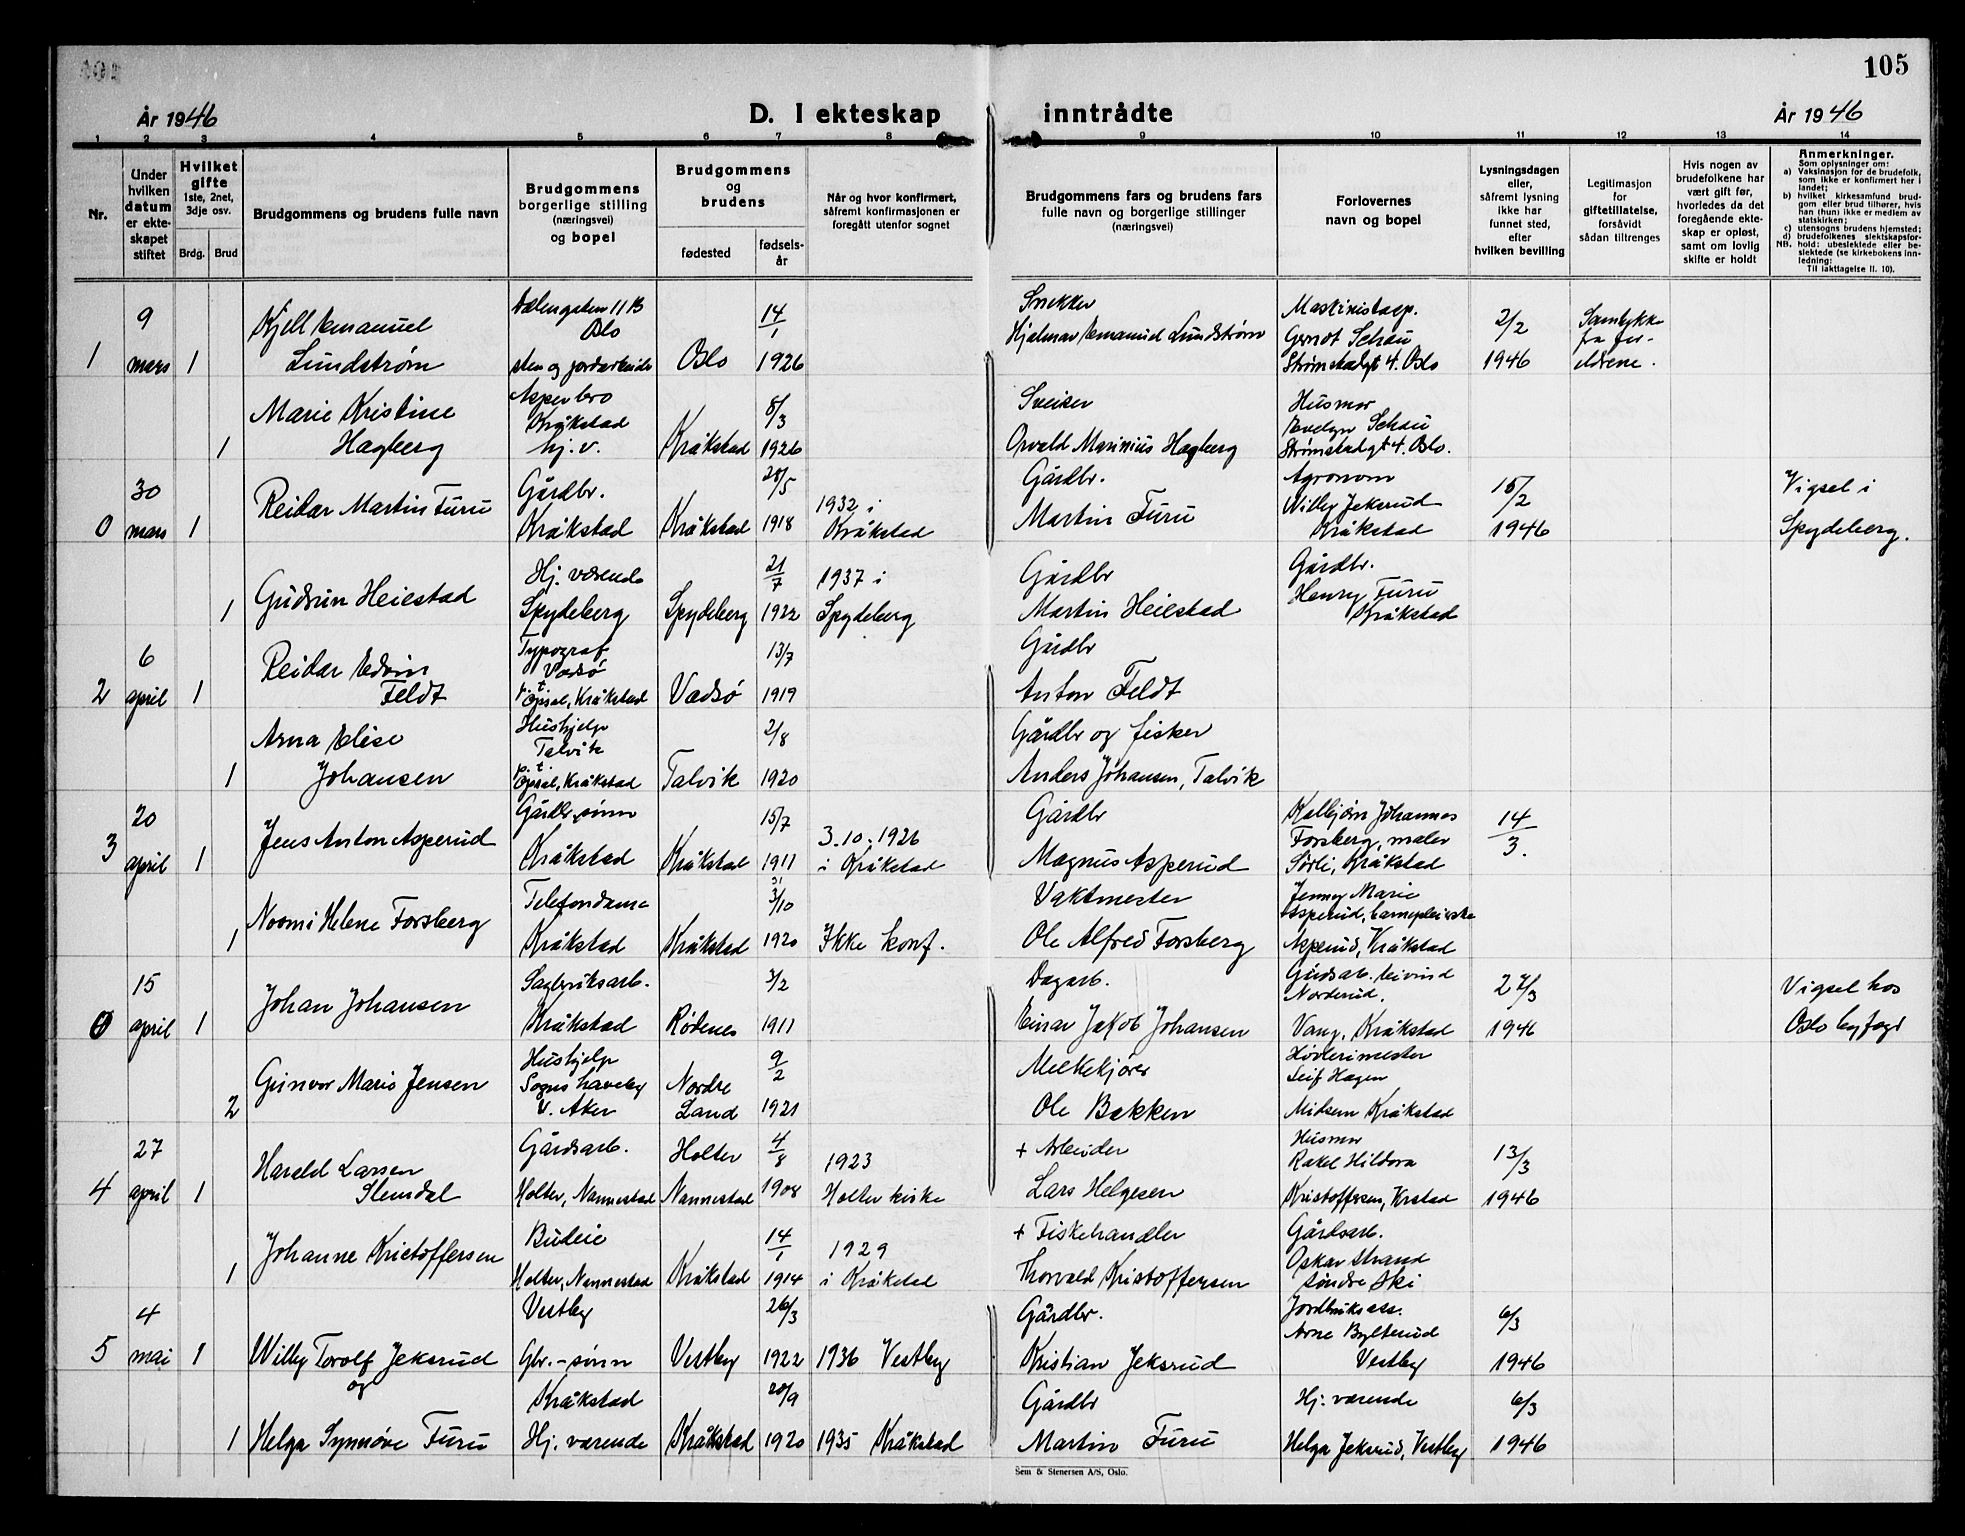 105
År 1946
D. I ekteskap inntrådte
År 1946
1 2 3 4 5 6 7 8 9 10 11 12 13 14
Nr.
Under hvilken datum er ekteskapet stiftet
Hvilket gifte 1ste, 2net, 3dje osv.
Brdg. Brud
Brudgommens og brudens fulle navn
Brudgommens borgerlige stilling (næringsvei) og bopel
Brudgommens og brudens
fødested
fødselsår
Når og hvor konfirmert, såfremt konfirmasjonen er foregått utenfor sognet
Brudgommens fars og brudens fars fulle navn og borgerlige stillinger (næringsvei)
Forlovernes navn og bopel
Lysningsdagen eller, såfremt lysning ikke har funnet sted, efter hvilken bevilling
Legitimasjon for giftetillatelse, forsåvidt sådan tiltrenges
Hvis nogen av brudefolkene har vært gift før, hvorledes da det foregående ekteskap er opløst, samt om lovlig skifte er holdt
Anmerkninger.
Som oplysninger om:
a) Vaksinasjon for de brudefolk, som ikke er konfirmert her i landet;
b) hvilket kirkesamfund brudgom eller brud tilhører, hvis han (hun) ikke er medlem av statskirken;
c) utensogns brudens hjemsted;
d) brudefolkenes slektskapsforhold: ubeslektede eller beslektede (se kirkebokens innledning:
NB. Til iakttagelse II. 10).
1 9 mars 1
Kjell Emanuel Lundstrøm
Vålengaten 11 B Oslo
sten og jordarbeider
Oslo 14/1 1926
Snekker
Hjalmar Emanuel Lundstrøm
Gerndt Schau
Strømstadgt 4. Oslo
2/2 1946
Samtykke fra foreldrene.
1
Marie Kristine Hagberg
Asperbro Kråkstad hj. v.
Kråkstad 8/3 1926
Sveiser
Osvald Marinius Hagberg
Husmor
Evelyn Schau
Strømstadgt 4. Oslo.
0 30 mars 1
Reidar Martin Furu
Gårdbr. Kråkstad
Kråkstad 20/5 1918
1932 i Kråkstad
Gårdbr.
Martin Furu
Agronom
Willy Jeksrud
Kråkstad
15/2 1946
Vigsel i Spydeberg.
1
Gudrun Heiestad
Hj. værende Spydeberg
Spydeberg 21/7 1922
1937 i Spydeberg
Gårdbr
Martin Heiestad
Gårdbr.
Henry Furu
Kråkstad
2 6 april 1
Reidar Edvin Feldt
Typograf Vadsø
p.t. Opsal, Kråkstad
Vadsø 13/7 1919
Gårdbr
Anton Feldt
1
Arna Elise Johansen
Hushjelp Talvik
p.t. Opsal, Kråkstad
Talvik 2/8 1920
Gårdbr og fisker
Anders Johansen, Talvik
3 20 april 1
Jens Anton Asperud
Gårdbr.sønn Kråkstad
Kråkstad 15/7 1911
3.10.1926 i Kråkstad
Gårdbr
Magnus Asperud
Kolbjørn Johannes Forsberg, maler
Sørli, Kråkstad
14/3.
1
Noomi Helene Forsberg
Telefondame Kråkstad
Kråkstad 3/10 1920
Ikke konf.
Vaktmester
Ole Alfred Forsberg
Jenny Marie Asperud, barnepleierske
Asperud, Kråkstad
0 15 april 1
Johan Johansen
Sagbruksarb. Kråkstad
Rødenes 3/2 1911
Dagarb.
Einar Jakob Johansen
Gårdsarb. Eivind Norderud.
Vang, Kråkstad
27/3 1946
Vigsel hos Oslo byfogd
2
Gunvor Marie Jensen
Hushjelp
Sogns haveby V. Aker
Nordre Land 9/2 1921
Melkekjører
Ole Bakken
Høvlerimester Leif Hagen
Midsem Kråkstad
4 27 april 1
Harald Larsen Stensdal
Gårdsarb. Holter, Nannestad
Holter Nannestad 4/8 1908
1923 Holter kirke
+ Arbeider
Lars Helgesen
Husmor
Rakel Hildora Kristoffersen, Krstad
13/3 1946
1
Johanne Kristoffersen
Budeie Holter, Nannestad
Kråkstad 14/1 1914
1929 i Kråkstad
+ Fiskehandler
Thorvald Kristoffersen
Gårdsarb.
Oskar Strand
Søndre Ski
5 4 mai 1
Willy Torolf Jeksrud
og
Vestby Gbr.-sønn
Vestby 26/3 1922
1936 Vestby
Gårdbr.
Kristian Jeksrud
Jordbruksass.
Arne Bylterud
Vestby
6/3 1946
1
Helga Synnøve Furu
Kråkstad Hj. værende
Kråkstad 20/9 1920
1935 Kråkstad
Gårdbr
Martin Furu
Hj. værende
Helga Jeksrud, Vestby
6/3 1946
Sem & Stenersen A/S, Oslo.